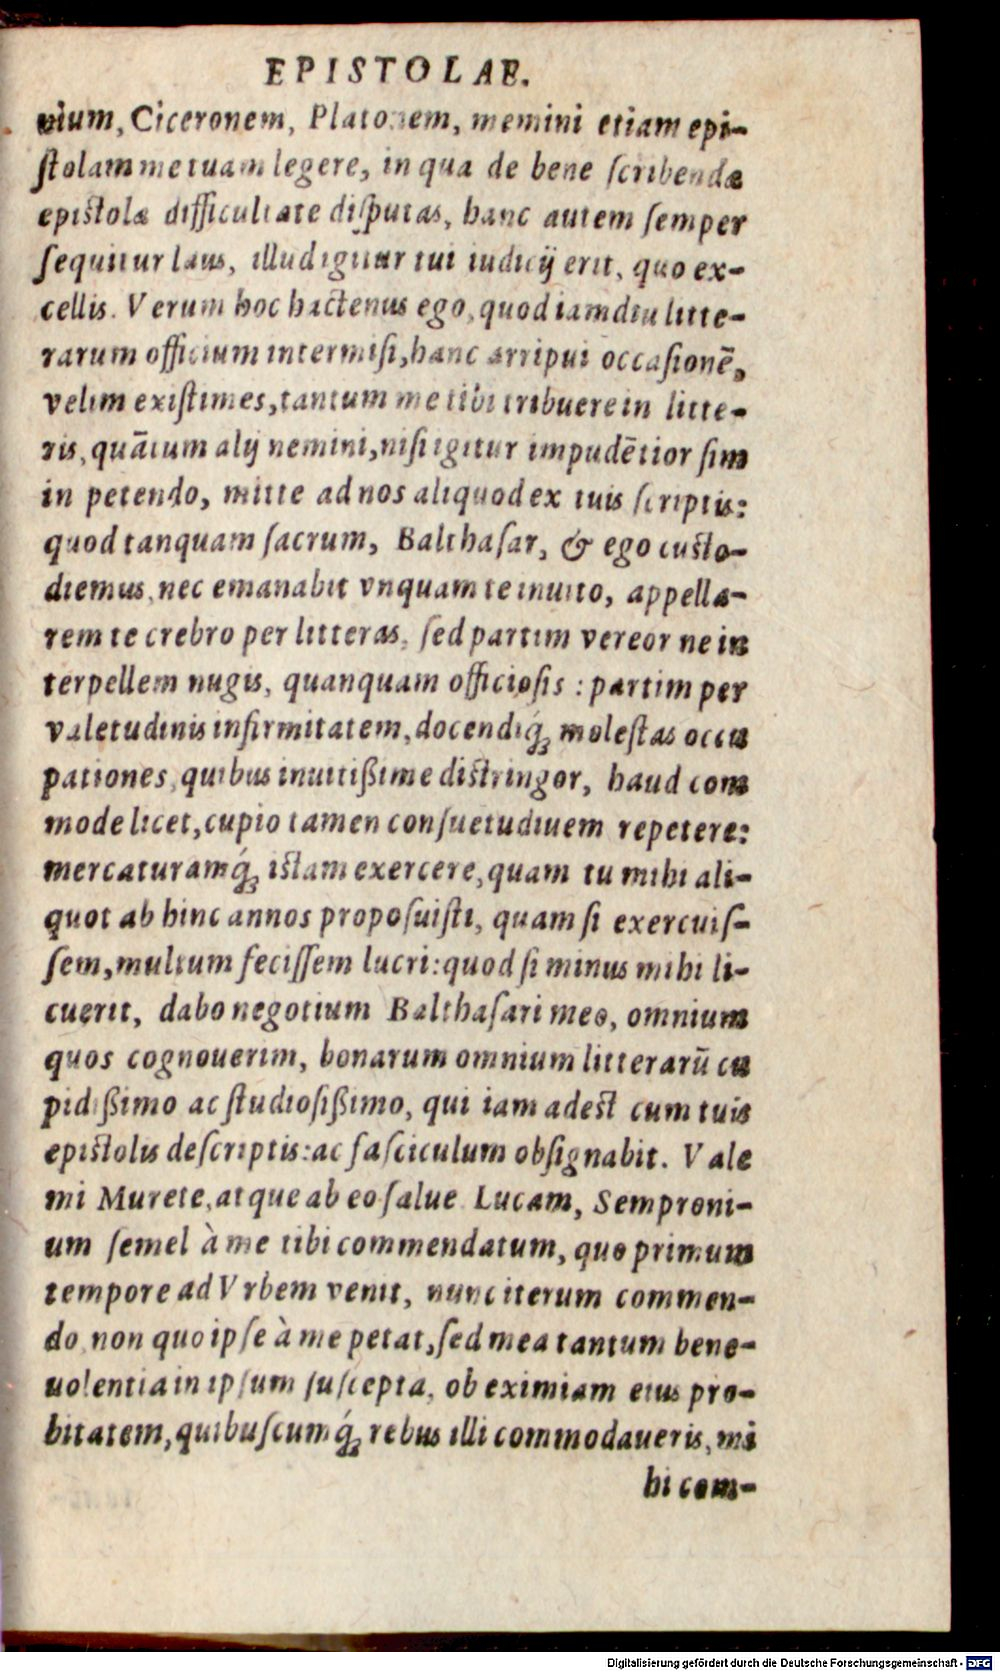 EPISTOLAE.
uium, Ciceronem, Platonem, memini etiam epi-
ſtolam me tuam legere, in qua de bene ſcribendæ
epistolæ difficultate diſputas, hanc autem ſemper
ſequitur laus, illud igitur tui iudicij erit, quo ex-
cellis. Verum hoc hactenus ego, quod iamdiu litte-
rarum officium intermiſi, hanc arripui occaſionē,
velim exiſtimes, tantum me tibi tribuere in litte-
ris, quātum alij nemini, niſi igitur impudētior ſim
in petendo, mitte ad nos aliquod ex tuis ſcriptis:
quod tanquam ſacrum, Balthaſar, & ego custo-
diemus, nec emanabit vnquam te inuito, appella-
rem te crebro per litteras, ſed partim vereor ne in
terpellem nugis, quanquam officioſis : partim per
valetudinis infirmitatem, docendiq́; moleſtas occu
pationes, quibus inuitißime distringor, haud com
mode licet, cupio tamen conſuetudiuem repetere:
mercaturamq́; istam exercere, quam tu mihi ali-
quot ab hinc annos propoſuiſti, quam ſi exercuiſ-
ſem, multum feciſſem lucri: quod ſi minus mihi li-
cuerit, dabo negotium Balthaſari meo, omnium
quos cognouerim, bonarum omnium litterarū cu
pidißimo ac ſtudioſißimo, qui iam adest cum tuis
epistolis deſcriptis: ac faſciculum obſignabit. Vale
mi Murete, atque ab eo ſalue. Lucam, Semproni-
um ſemel à me tibi commendatum, quo primum
tempore ad Vrbem venit, nunc iterum commen-
do, non quo ipſe à me petat, ſed mea tantum bene-
uolentia in ipſum ſuſcepta, ob eximiam eius pro-
bitatem, quibuſcumq́; rebus illi commodaueris, mi
hi com-
Digitalisierung gefördert durch die Deutsche Forschungsgemeinschaft - DFG